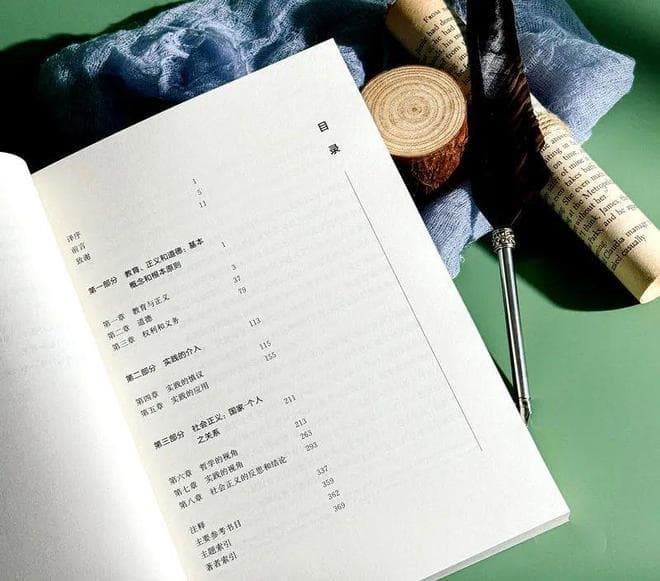 目录
译序 1
前言 5
致谢 11
第一部分 教育、正义和道德：基本 1
概念和根本原则
第一章 教育与正义 3
第二章 道德 37
第三章 权利和义务 79
第二部分 实践的介入 113
第四章 实践的慎议 115
第五章 实践的应用 155
第三部分 社会正义：国家·个人 211
之关系
第六章 哲学的视角 213
第七章 实践的视角 263
第八章 社会正义的反思和结论 293
注释 337
主要参考书目 359
主题索引 362
著者索引 369
had done
She even
at the
even takes
without her
Claudia
casually